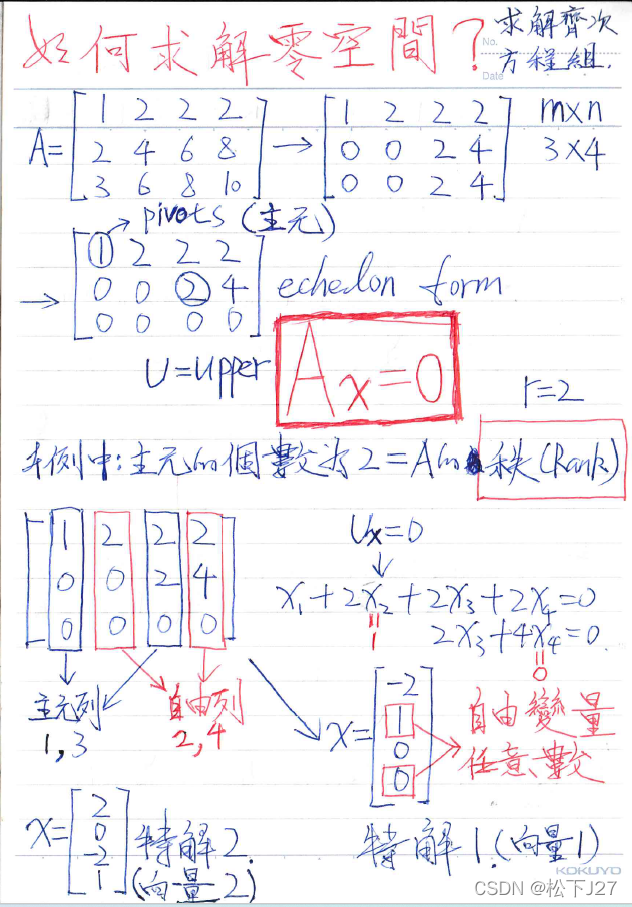 如何求解零空間？
求解齊次
方程組.
No.
Date
A= [ 1 2 2 2 ; 2 4 6 8 ; 3 6 8 10 ] → [ 1 2 2 2 ; 0 0 2 4 ; 0 0 2 4 ]
m×n
3×4
pivots (主元)
→ [ 1 2 2 2 ; 0 0 2 4 ; 0 0 0 0 ] echelon form
U=upper
Ax=0
r=2
本例中:主元的個數為2=A的秩(Rank)
[ 1 2 2 2 ; 0 0 2 4 ; 0 0 0 0 ]
Ux=0
x1+2x2+2x3+2x4=0
2x3+4x4=0.
=1
=0
主元列
1,3
自由列
2,4
x= [ -2 ; 1 ; 0 ; 0 ]
自由變量
任意數
x= [ 2 ; 0 ; -2 ; 1 ] 特解2.
(向量2)
特解1.(向量1)
KOKUYO
CSDN @松下J27